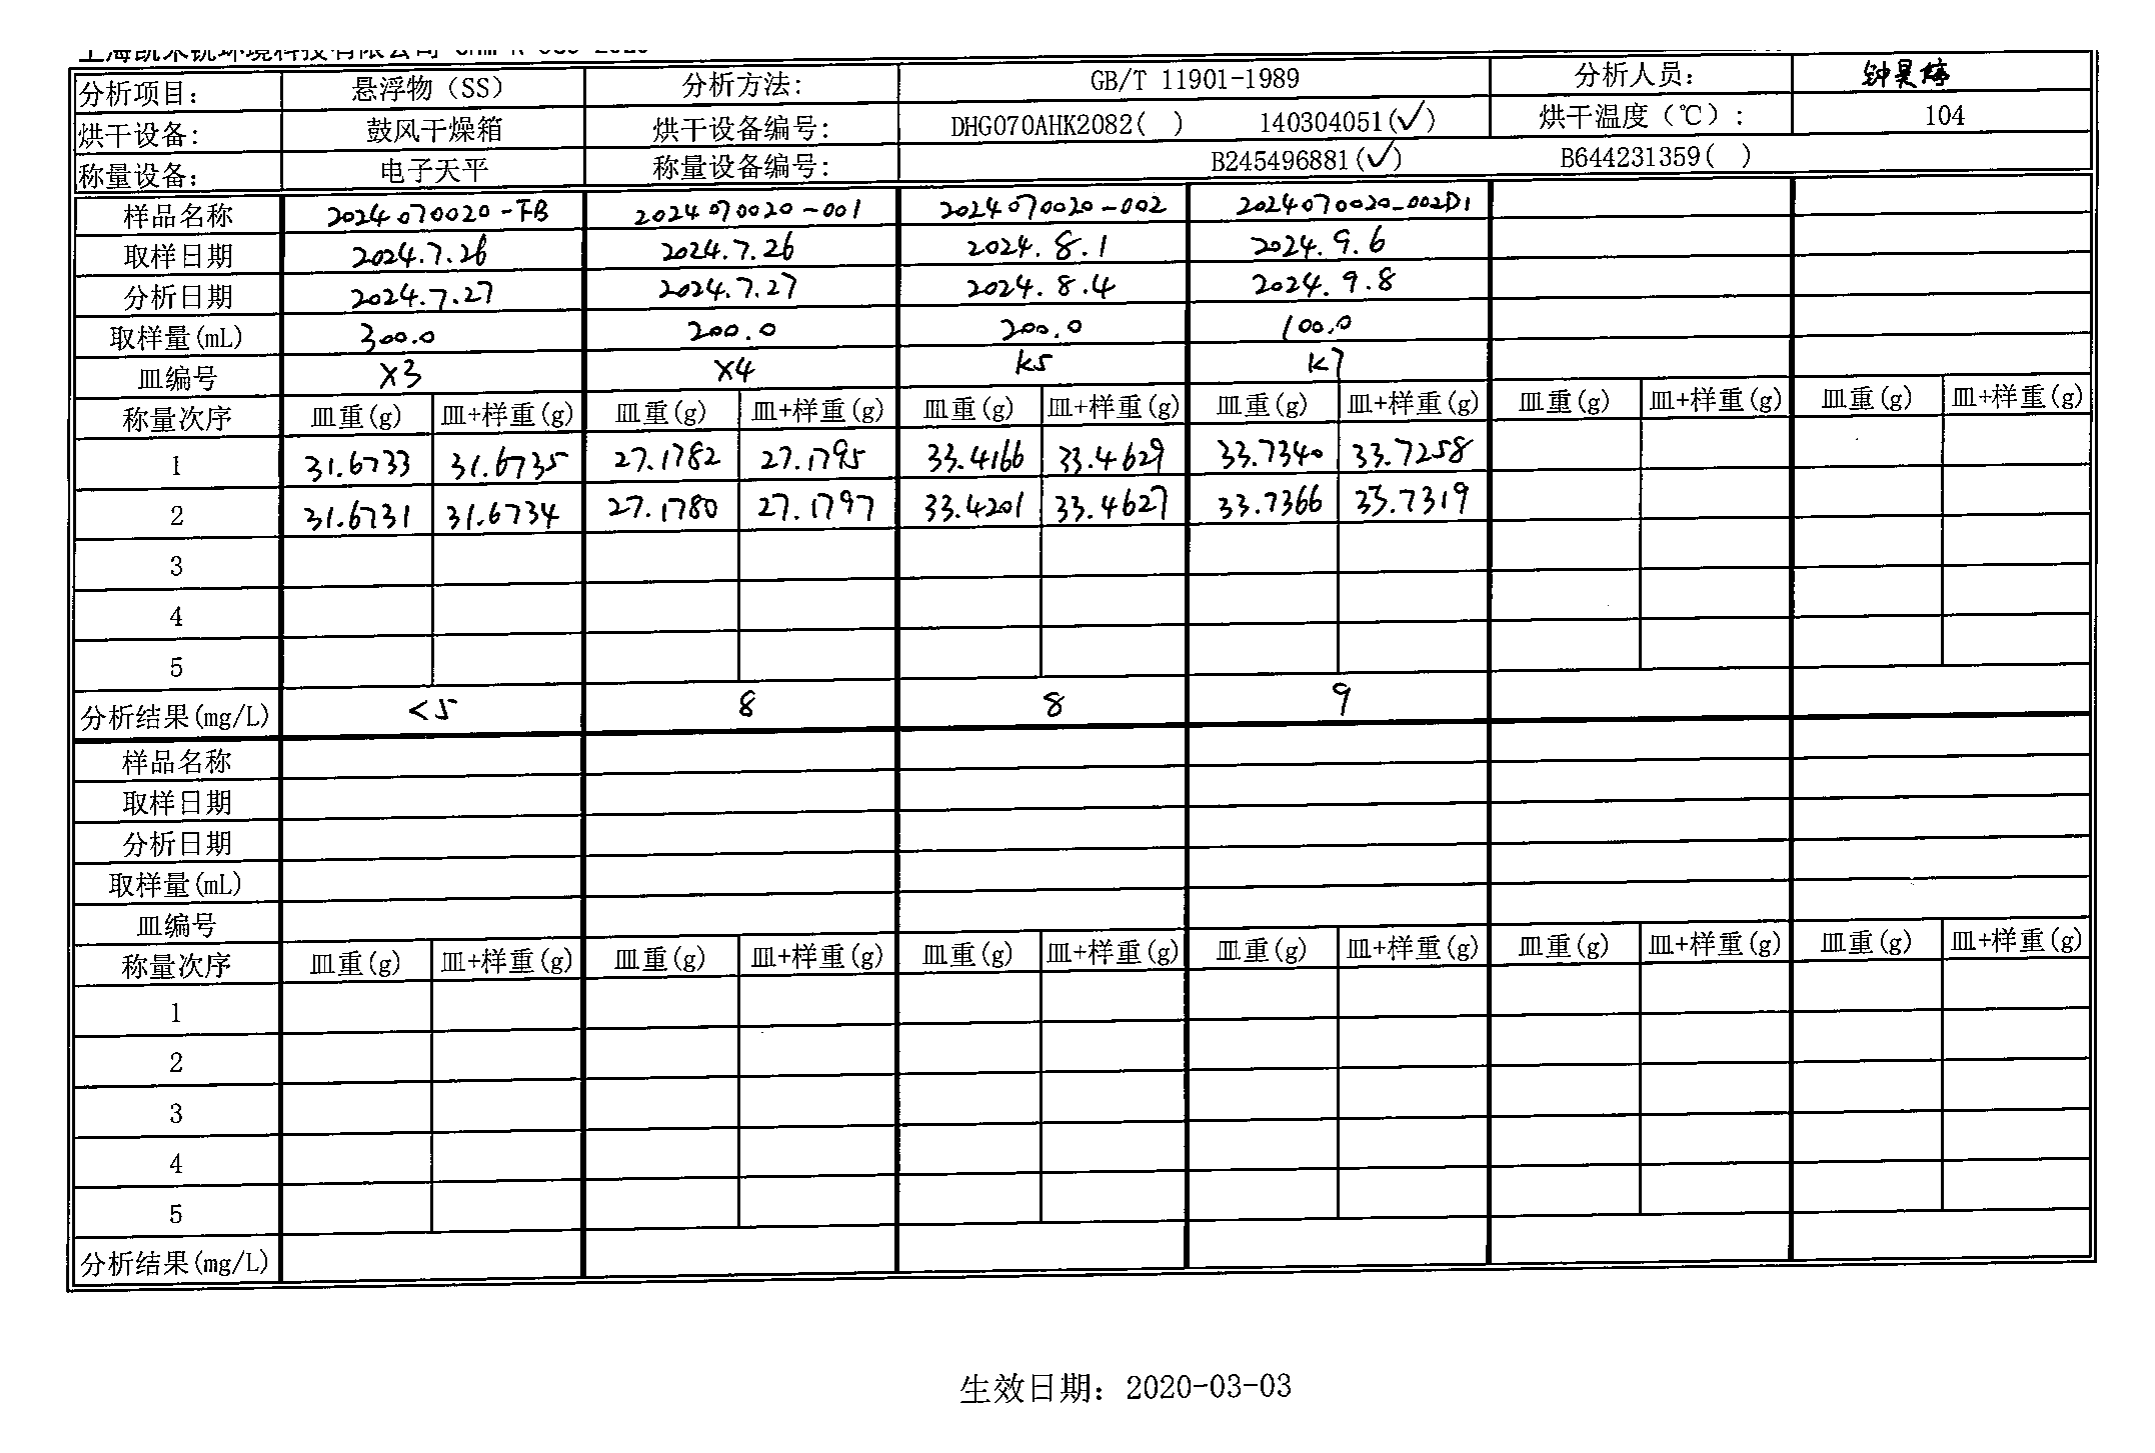 分析项目: 悬浮物（SS） 分析方法: GB/T 11901-1989 分析人员:
烘干设备: 鼓风干燥箱 烘干设备编号: DHG070AHK2082( ) 140304051(✓) 烘干温度（℃）: 104
称量设备: 电子天平 称量设备编号: B245496881(✓) B644231359( )
样品名称 2024070020-FB 2024070020-001 2024070020-002 2024070020-002D1
取样日期 2024.7.26 2024.7.26 2024.8.1 2024.9.6
分析日期 2024.7.27 2024.7.27 2024.8.4 2024.9.8
取样量(mL) 300.0 200.0 200.0 100.0
皿编号 X3 X4 K5 K7
称量次序 皿重(g) 皿+样重(g) 皿重(g) 皿+样重(g) 皿重(g) 皿+样重(g) 皿重(g) 皿+样重(g) 皿重(g) 皿+样重(g) 皿重(g) 皿+样重(g)
1 31.6733 31.6735 27.1782 27.1795 33.4166 33.4629 33.7340 33.7258
2 31.6731 31.6734 27.1780 27.1797 33.4201 33.4627 33.7366 33.7319
3
4
5
分析结果(mg/L) <5 8 8 9
样品名称
取样日期
分析日期
取样量(mL)
皿编号
称量次序 皿重(g) 皿+样重(g) 皿重(g) 皿+样重(g) 皿重(g) 皿+样重(g) 皿重(g) 皿+样重(g) 皿重(g) 皿+样重(g) 皿重(g) 皿+样重(g)
1
2
3
4
5
分析结果(mg/L)
生效日期: 2020-03-03